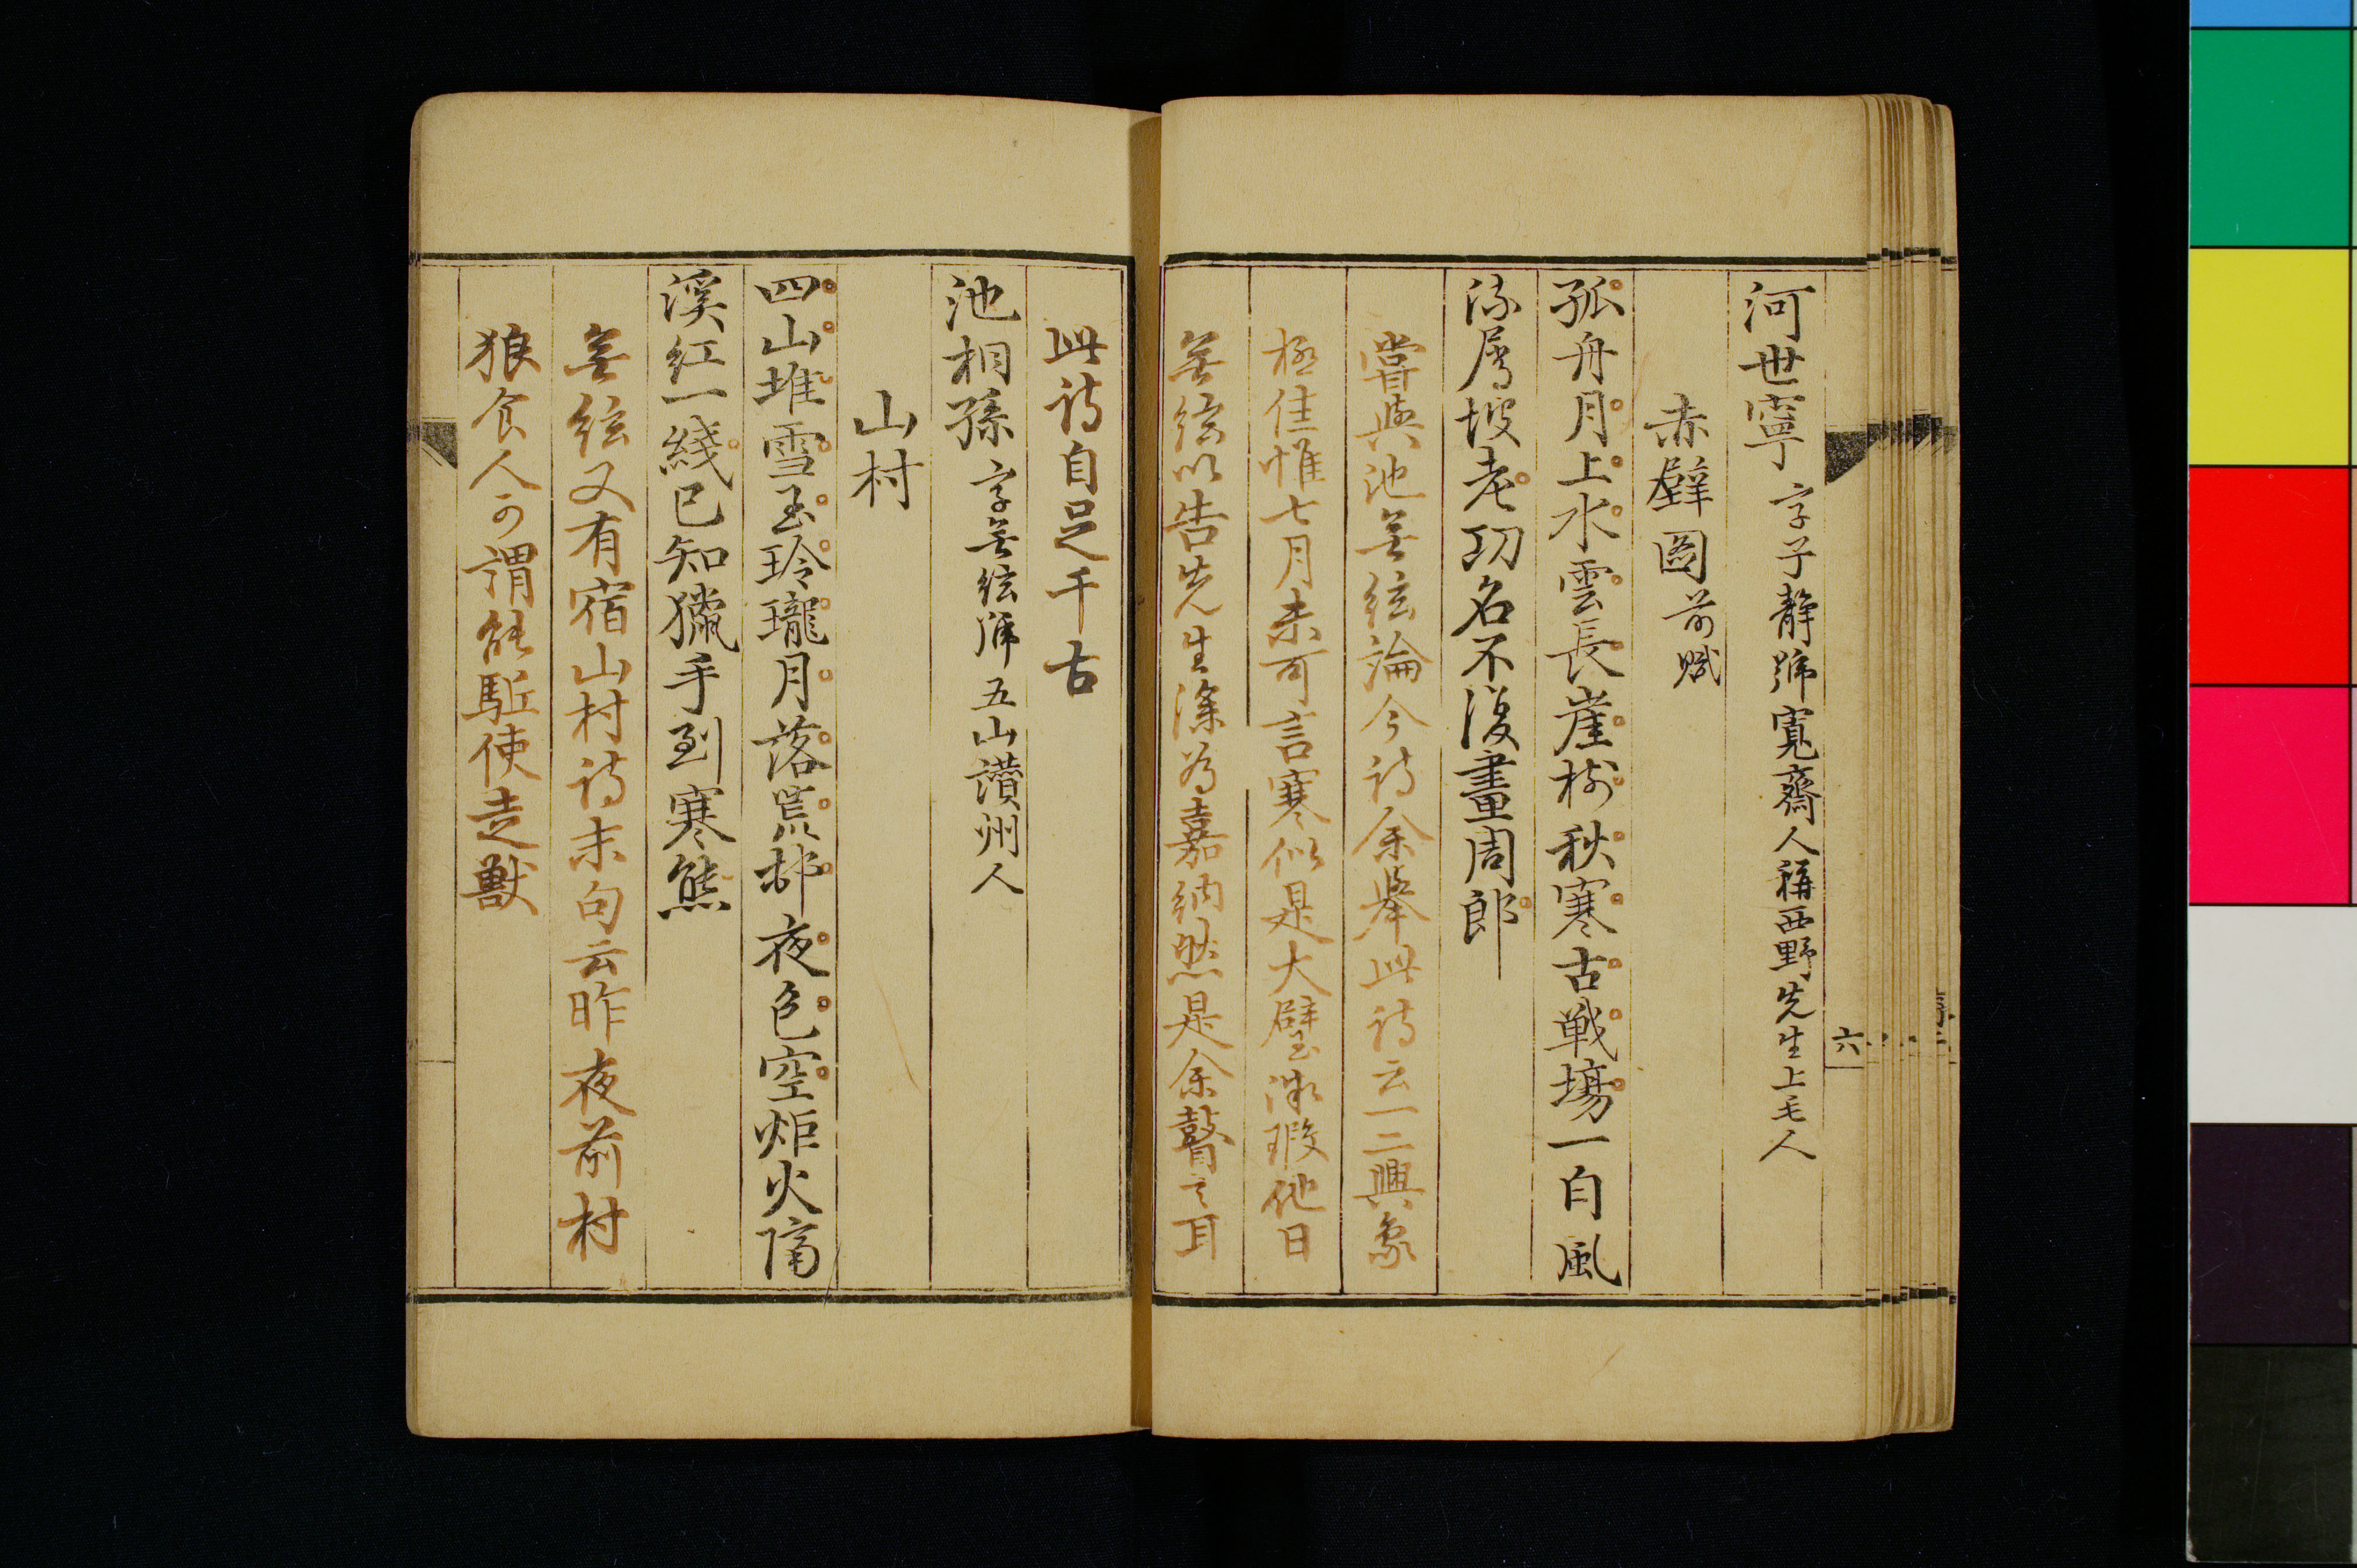 河世寧 字子静號寛齋人稱西野先生上毛人
赤壁圖 前賦
孤舟月上水雲長崖樹秋寒古戦場一自風
流属坡老功名不復畫周郎
嘗與池無絃論今詩余舉此詩云一二興象
極佳惟七月未可言寒似是大璧微瑕他日
無絃以告先生深為嘉納然是余瞽言耳
六
此詩自足千古
池桐孫 字無絃号五山讃州人
山村
四山堆雪玉玲瓏月落荒邨夜色空炬火隔
溪紅一綫已知獵手到寒熊
無絃又有宿山村詩末句云昨夜前村
狼食人可謂能駈使走獣